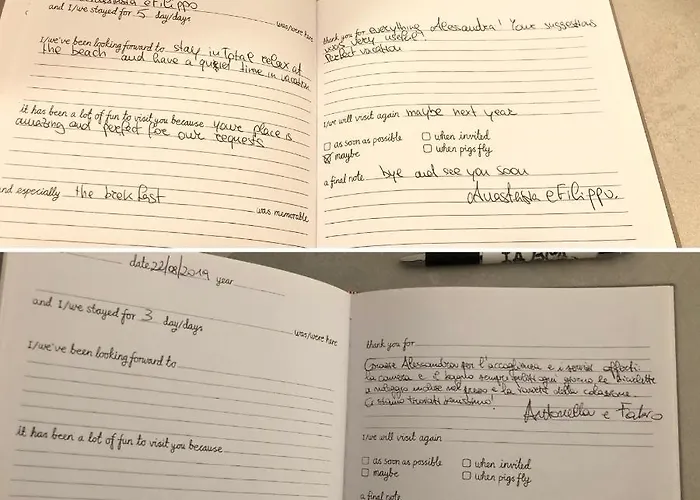 e Filippo
and I/we stayed for 5 day/days
was/were here
I/we've been looking forward to stay in total relax at
the beach and have a quiet time in vacation
it has been a lot of fun to visit you because your place is
amazing and perfect for our requests
and especially the brekfast
was memorable
thank you for everything Alessandra! Your suggestions
was very useful!
Perfect vacation
I/we will visit again maybe next year
as soon as possible
when invited
maybe
when pigs fly
a final note bye and see you soon
Anastasia e Filippo.
date 22/08/2019 year
and I/we stayed for 3 day/days
was/were here
I/we've been looking forward to
it has been a lot of fun to visit you because
thank you for
Grazie Alessandra per l'accoglienza e i servizi offerti
la camera e il bagno sempre puliti ogni giorno le biciclette
a noleggio incluse nel prezzo e la varietà della colazione.
Ci siamo trovati benissimo!
Antonella e Fabio
I/we will visit again
as soon as possible
when invited
maybe
when pigs fly
a final note